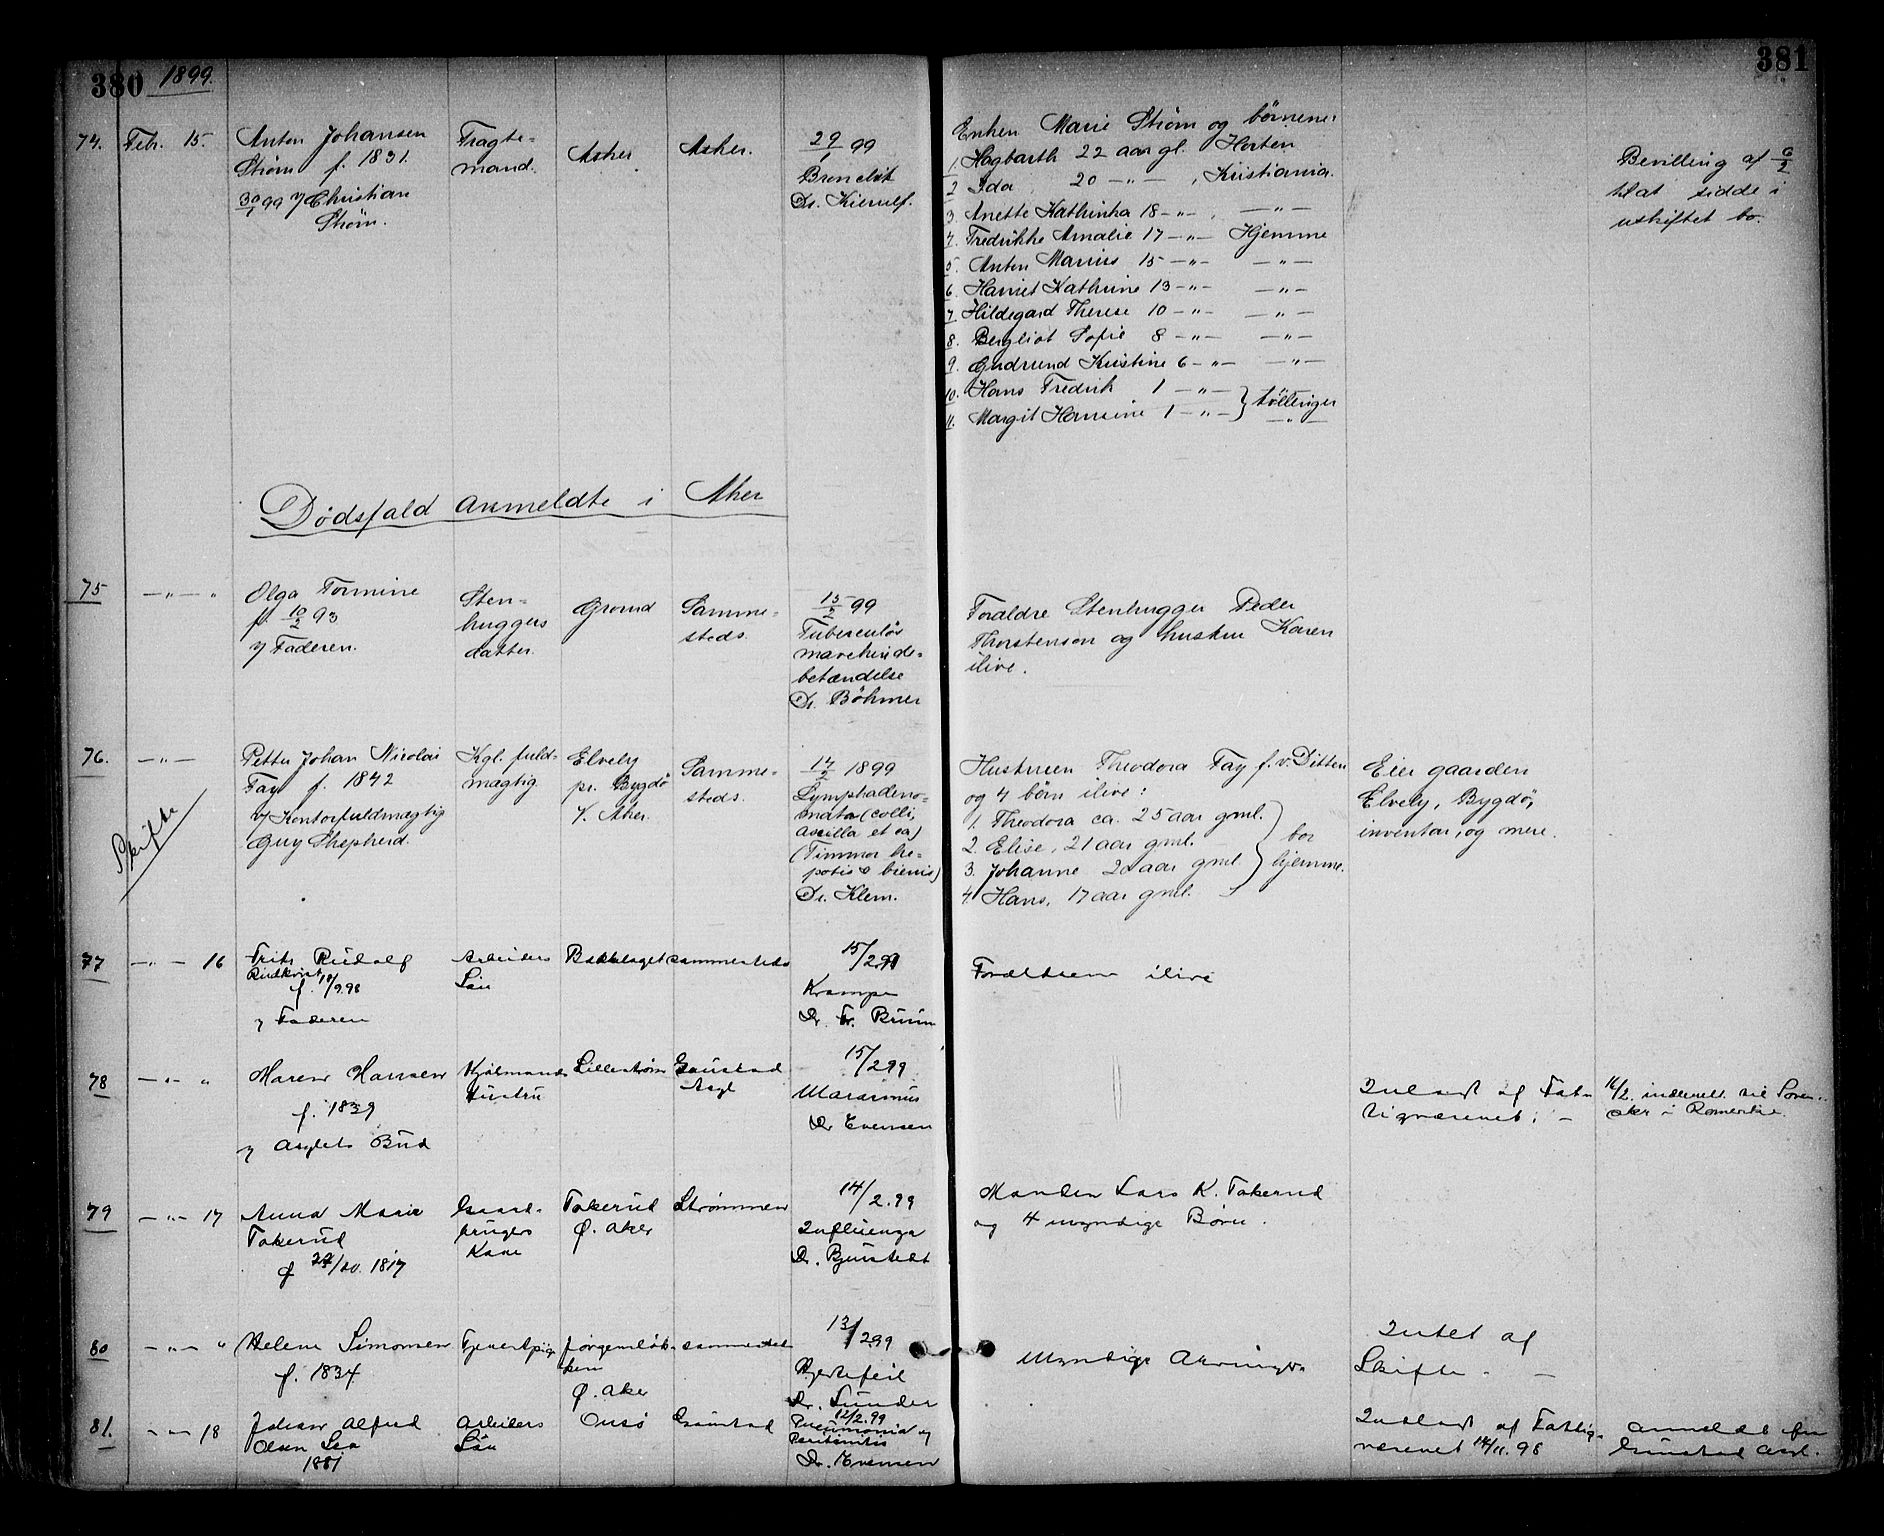 380 1899.
381
74. Febr. 15. Anton Johansen
Strøm f. 1831.
30/1 99 v/ Christian
Strøm.
Fragte-
mand.
Asker
Asker.
29/1 99
Dr. Kierulf.
Enken Marie Strøm og børnene:
1. Hagbarth 22 aar gl. Horten
2 Ida 20 —"— , Kristiania.
3. Anette Kathinka 18 —"— , —"—
4. Fredrikke Amalie 17 —"— Hjemme
5. Anton Marius 15 —"— —"—
6. Harriet Kathrine 13 —"— —"—
7. Hildegard Therese 10 —"— —"—
8. Bergliot Sofie 8 —"— —"—
9. Gudrund Kristine 6 —"— —"—
10. Hans Fredrik 1 —"— } tvillinger
11. Margit Hansine 1 —"— —"—
Bevilling af 6/2
til at sidde i
uskiftet bo.
Dødsfald anmeldte i Aker
75 —"— " Olga Tormine
f. 10/2 93
v/ Faderen.
Sten-
huggers
datter.
Grorud
Samme-
steds.
15/2 99
Tuberculøs
betændelse
Dr. Böhmer
Forældre Stenhugger Peder
Thorstenson og hustru Karen
ilive.
76. —"— Petter Johan Nicolai
Fay f. 1842
v/ Kontorfuldmægtig
Guy Shepherd.
Skifte
Kgl. fuld-
mægtig
Elvely
pr. Bygdø
V. Aker.
Samme-
steds.
14/2 1899
Lymphadeno-
mata (colli,
axilla et ca)
(Tummor he-
patis &
Dr. Klem.
Hustruen Theodora Fay f. v. Ditten
og 4 børn ilive:
1. Theodora ca. 25 aar gml.
2. Elise, 21 aar gml.
3. Johanne 20 aar gml
4. Hans, 17 aar gml.
bor
hjemme.
Eier gaarden
Elvely, Bygdø,
inventar, og mere.
77 —"— 16 Frits Rudolf
f. 10/9.98
v/ Faderen
Arbeiders
Søn
Bækkelaget
sammesteds
15/2.99
Krampe
Dr. Fr. Bruun
Forældrene ilive
78 —"— " Maren Hansen
f. 1839
v/ Asylets Bud
Hustru
Lillestrøm
Gaustad
Asyl
15/2 99
Marasmus
Dr Evensen
Indlagt af Fat-
tigvæsenet. —
16/2. indberett. til Soren-
skr i Romerike.
79 —"— 17 Anna Marie
Tokerud
f 22/10. 1817
Gaard-
brugers
Kone
Tokerud
Ø. Aker
Strømmen
14/2.99
Influenza
Dr. Bjørnstedt
Manden Lars K. Tokerud
og 4 myndige Børn.
80 —"— " Helene Simonsen
f. 1834
Tjenestpige
Jørgensløk-
ken
Ø. Aker
sammesteds
13/2 99
Hjertefeil
Dr. Sunder
Myndige Arvinger.
Intet at
Skifte. —
81. —"— 18 Johan Alfred
Olsen
1881
Arbeiders
Søn
Onsø
Gaustad
12/2.99
Pneumonia og
Dr. Evensen
Indlagt af Fattig-
væsenet 14/11. 98
Anmeldt fra
Gaustad Asyl.